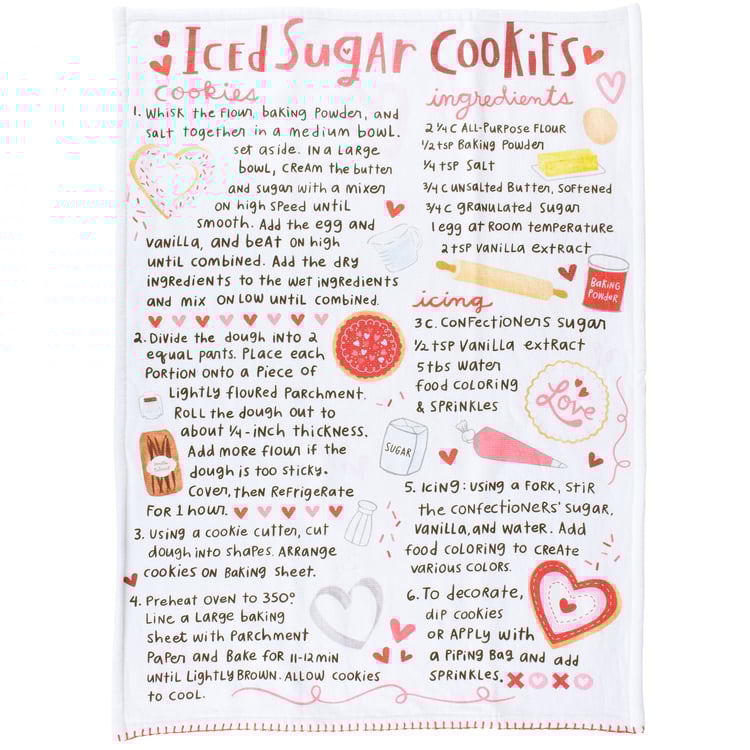 Iced Sugar Cookies
cookies
1. Whisk the flour, baking powder, and
salt together in a medium bowl.
set aside. In a large
bowl, cream the butter
and sugar with a mixer
on high speed until
smooth. Add the egg and
vanilla, and beat on high
until combined. Add the dry
ingredients to the wet ingredients
and mix on low until combined.
2. Divide the dough into 2
equal parts. Place each
portion onto a piece of
lightly floured parchment.
Roll the dough out to
about 1/4-inch thickness.
Add more flour if the
dough is too sticky.
Cover, then refrigerate
for 1 hour.
3. Using a cookie cutter, cut
dough into shapes. Arrange
cookies on baking sheet.
4. Preheat oven to 350°
Line a large baking
sheet with parchment
paper and bake for 11-12 min
until lightly brown. Allow cookies
to cool.
ingredients
2 1/4 c all-purpose flour
1/2 tsp baking powder
1/4 tsp salt
3/4 c unsalted butter, softened
3/4 c granulated sugar
1 egg at room temperature
2 tsp vanilla extract
Baking
Powder
icing
3 c. confectioners sugar
1/2 tsp vanilla extract
5 tbs water
food coloring
& sprinkles
Love
Sugar
5. Icing: using a fork, stir
the confectioners' sugar,
vanilla, and water. Add
food coloring to create
various colors.
6. To decorate,
dip cookies
or apply with
a piping bag and add
sprinkles.